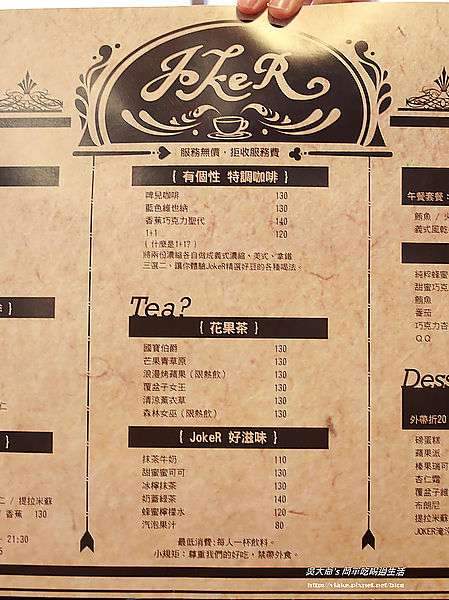 JokeR
服務無價，拒收服務費
{ 有個性 特調咖啡 }
啤兒咖啡 130
藍色維也納 130
香蕉巧克力聖代 140
1+1 120
{ 什麼是1+1? }
將兩份濃縮各自做成義式濃縮、美式、拿鐵
三選二，讓你體驗JokeR精選好豆的各種喝法。
Tea?
{ 花果茶 }
國寶伯爵 130
芒果青草原 130
浪漫烤蘋果（限熱飲） 130
覆盆子女王 130
清涼薰衣草 130
森林女巫（限熱飲） 130
{ JokeR 好滋味 }
抹茶牛奶 110
甜蜜蜜可可 130
冰檸抹茶 130
奶蓋綠茶 140
蜂蜜檸檬水 120
汽泡果汁 80
最低消費:每人一杯飲料。
小規矩：尊重我們的好吃，禁帶外食。
仁
仁 / 提拉米蘇
/ 香蕉 130
- 21:30
午餐套餐：
鮪魚 / 
義式風乾
純粹蜂蜜
甜蜜巧克
鮪魚
番茄
巧克力杏
QQ
Dess
外帶折20
磅蛋糕
蘋果派
榛果瑞可
杏仁霜
覆盆子維
布朗尼
提拉米蘇
JOKER淹沒
吳大爺's 鬥爪吃喝過生活
http://viake.pixnet.net/bloc